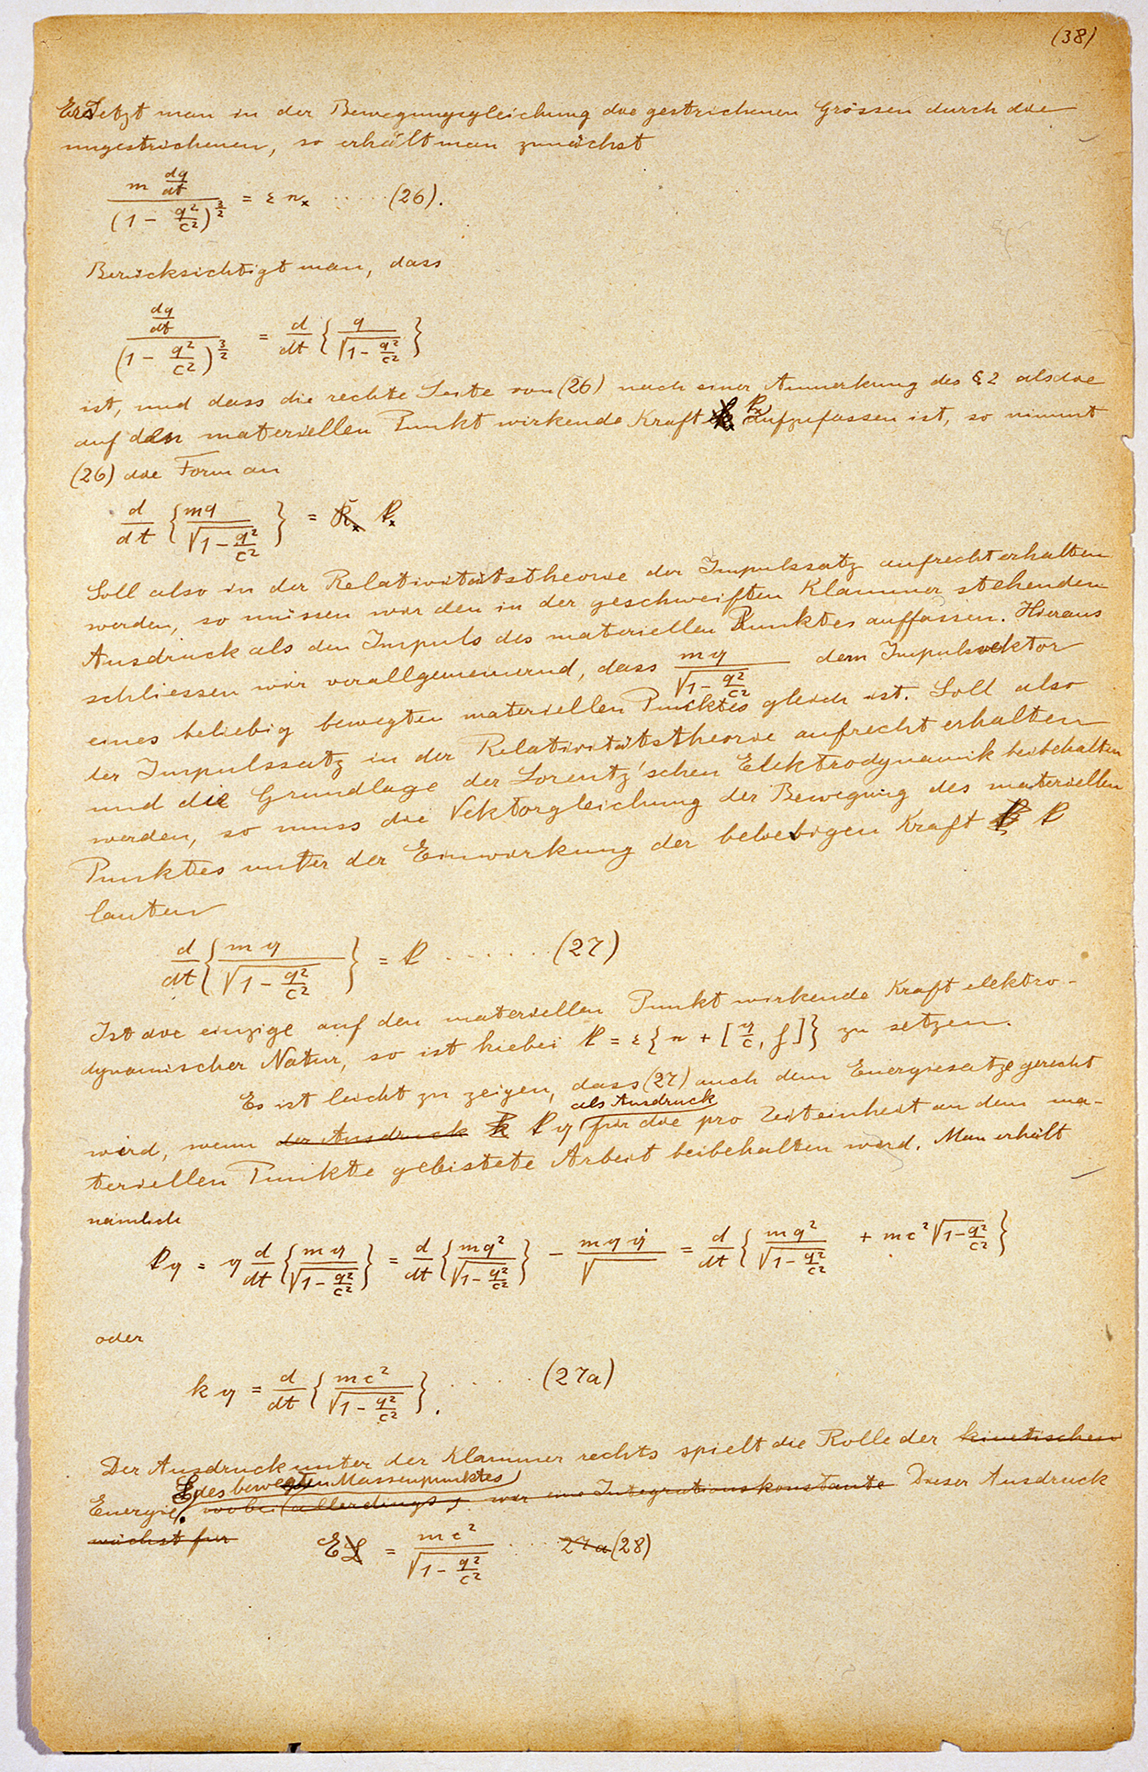 (38)
Ersetzt man in der Bewegungsgleichung die gestrichenen Grössen durch die
ungestrichenen, so erhält man zunächst
m dq/dt / (1 − q²/c²)^3/2 = ε n_x ····· (26).
Berücksichtigt man, dass
dq/dt / (1 − q²/c²)^3/2 = d/dt { q / √1 − q²/c² }
ist, und dass die rechte Seite von (26) nach einer Anmerkung des § 2 als die
auf den materiellen Punkt wirkende Kraft k_x aufzufassen ist, so nimmt
(26) die Form an
d/dt { mq / √1 − q²/c² } = K_x k_x
Soll also in der Relativitätstheorie der Impulssatz aufrecht erhalten
werden, so müssen wir den in der geschweiften Klammer stehenden
Ausdruck als den Impuls des materiellen Punktes auffassen. Hieraus
schliessen wir verallgemeinernd, dass m q / √1 − q²/c² dem Impulsvektor
eines beliebig bewegten materiellen Punktes gleich ist. Soll also
der Impulssatz in der Relativitätstheorie aufrecht erhalten
und die Grundlage der Lorentz'schen Elektrodynamik beibehalten
werden, so muss die Vektorgleichung der Bewegung des materiellen
Punktes unter der Einwirkung der beliebigen Kraft k
lauten
d/dt { m q / √1 − q²/c² } = k ······ (27)
Ist die einzige auf den materiellen Punkt wirkende Kraft elektro-
dynamischer Natur, so ist hiebei k = ε { n + [ q/c , f ] } zu setzen.
Es ist leicht zu zeigen, dass (27) auch dem Energiesatze gerecht
wird, wenn der Ausdruck k k q als Ausdruck für die pro Zeiteinheit an dem ma-
teriellen Punkte geleistete Arbeit beibehalten wird. Man erhält
nämlich
k q = q d/dt { m q / √1 − q²/c² } = d/dt { mq² / √1 − q²/c² } − m q q̇ / √ = d/dt { mq² / √1 − q²/c² + mc² √1 − q²/c² }
oder
k q = d/dt { mc² / √1 − q²/c² } . ····· (27a)
Der Ausdruck unter der Klammer rechts spielt die Rolle der kinetischen
E des bewegten Massenpunktes
Energie. wobei allerdings, wir eine Integrationskonstante Dieser Ausdruck
wächst für
E L = mc² / √1 − q²/c² ···· 27a (28)